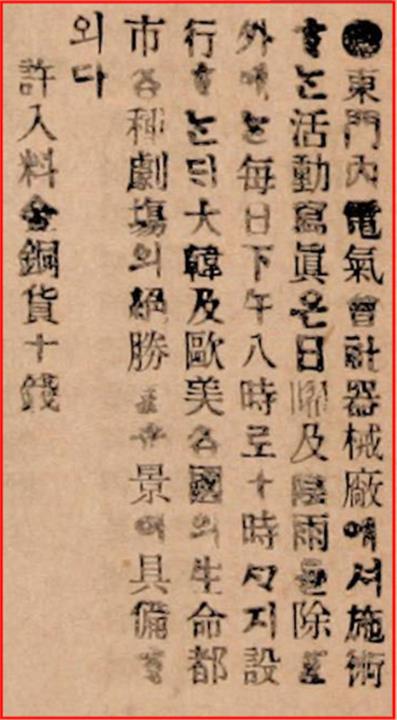 ●東門內電氣會社器械廠에서施術
ᄒᆞ는活動寫眞은日曜及陰雨를除ᄒᆞᆫ
外에는每日下午八時로十時ᄭᆞ지設
行ᄒᆞ는ᄃᆡ大韓及歐美各國의生命都
市各種劇塲의絕勝ᄒᆞᆫ景이具備ᄒᆞ
외다
許入料金銅貨十錢